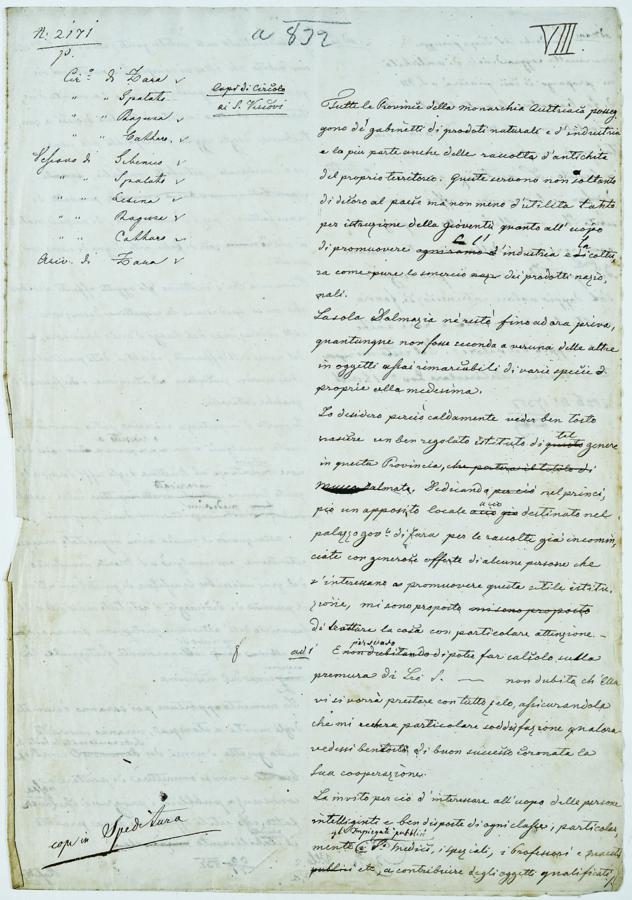 N: 2171
p.
a 832
VIII
Cir.º di Zara
" " Spalato
" " Ragusa
" " Cattaro
Vescovo di Sebenico
" " Spalato
" " Lesina
" " Ragusa
" " Cattaro
Arciv. di Zara
Capi di Circolo
ai S. Vescovi
Tutte le Provincie della monarchia Austriaca posseg
gono dé gabinetti di prodoti naturali e d'industria
e la piu parte anche delle raccolta d'antichità
del proprio territorio. Queste servono non soltanto
di decoro al paese mà non meno d'utilità tanto
per istruzione della Gioventù quanto all'uopo
di promuovere l'industria e la coltu
ra come pure lo smercio dei prodotti nazio,
nali.
La sola Dalmazia nè restò fino ad ora priva,
quantunque non fosse seconda a veruna delle altre
in oggetti assai rimarcabili di varie specie
proprie alla medesima.
Io desidero perciò caldamente veder ben tosto
nascere un ben regolato istituto di questo tal genere
in questa Provincia, che porterà il titolo di
Museo Dalmata. Dedicando per ciò nel princi,
pio un apposito locale a ciò già destinato nel
palazzo gov.le di Zara per le raccolte già incomin,
ciate con generose offerte di alcune persone che
s'interessano a promuovere questa utile istitu,
zione, mi sono proposto mi sono proposto
di trattare la cosa con particolare attenzione. –
8 ad 1 E non dubitando persuaso di poter far calcolo sulla
premura di Lei S. — non dubito, ch'Ella
vi si vorrà prestare con tutto zelo, assicurandola
che mi recherà particolare soddisfazione qualora
vedessi bentosto di buon successo coronata la
sua cooperazione.
La invito per ciò d'interessare all'uopo delle persone
intelligenti e ben disposte di ogni classe, particolar
gl'Impiegati pubblici
mente i Medici, i speziali, i Professori e maestri
publici etc, a contribuire degli oggetti qualificati,
cop. in Speditura